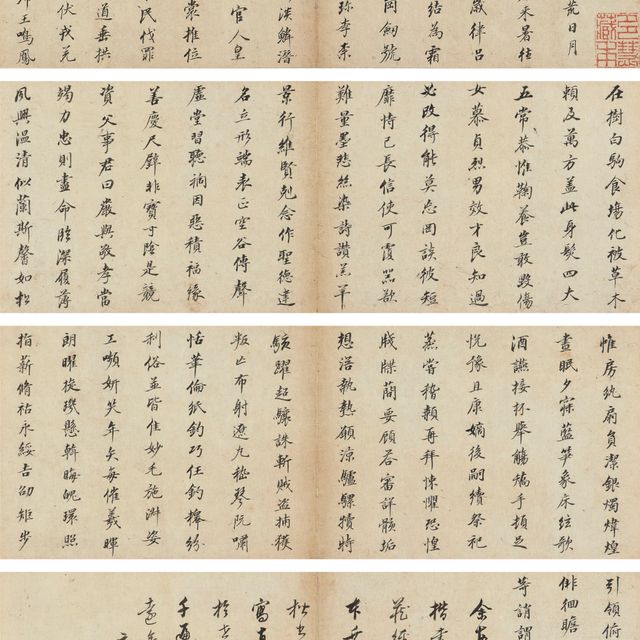 荒日月
来暑往
歲律呂
結為霜
岡劍號
珍李柰
淡鱗潛
官人皇
裳推位
民伐罪
道垂拱
伏戎羌
王鳴鳳
在樹白駒食場化被草木
賴及萬方蓋此身髮四大
五常恭惟鞠養豈敢毀傷
女慕貞烈男效才良知過
必改得能莫忘罔談彼短
靡恃己長信使可覆器欲
難量墨悲絲染詩讚羔羊
景行維賢剋念作聖德建
名立形端表正空谷傳聲
虛堂習聽禍因惡積福緣
善慶尺璧非寶寸陰是競
資父事君曰嚴與敬孝當
竭力忠則盡命臨深履薄
夙興溫凊似蘭斯馨如松
惟房紈扇員潔銀燭煒煌
晝眠夕寐藍笋象床弦歌
酒讌接杯舉觴矯手頓足
悅豫且康嫡後嗣續祭祀
蒸嘗稽顙再拜悚懼恐惶
牋牒簡要顧答審詳骸垢
想浴執熱願涼驢騾犢特
駭躍超驤誅斬賊盜捕獲
叛亡布射遼丸嵇琴阮嘯
恬筆倫紙鈞巧任釣釋紛
利俗並皆佳妙毛施淑姿
工顰妍笑年矢每催羲暉
朗曜旋璣懸斡晦魄環照
指薪脩祜永綏吉劭矩步
引領俯
徘徊瞻
等誚謂
余
楷
本
松
寫
於
千
遠